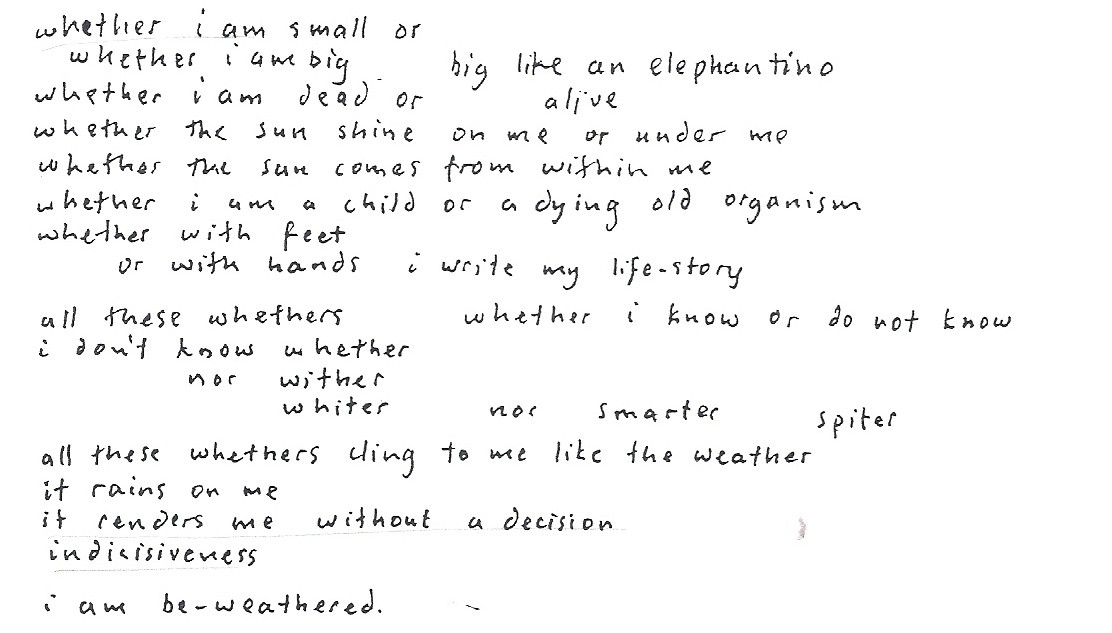 whether i am small or
whether i am big big like an elephantino
whether i am dead or alive
whether the sun shine on me or under me
whether the sun comes from within me
whether i am a child or a dying old organism
whether with feet
or with hands i write my life-story
all these whethers whether i know or do not know
i don't know whether
nor wither
whiter nor smarter spiter
all these whethers cling to me like the weather
it rains on me
it renders me without a decision
indicisiveness
i am be-weathered.